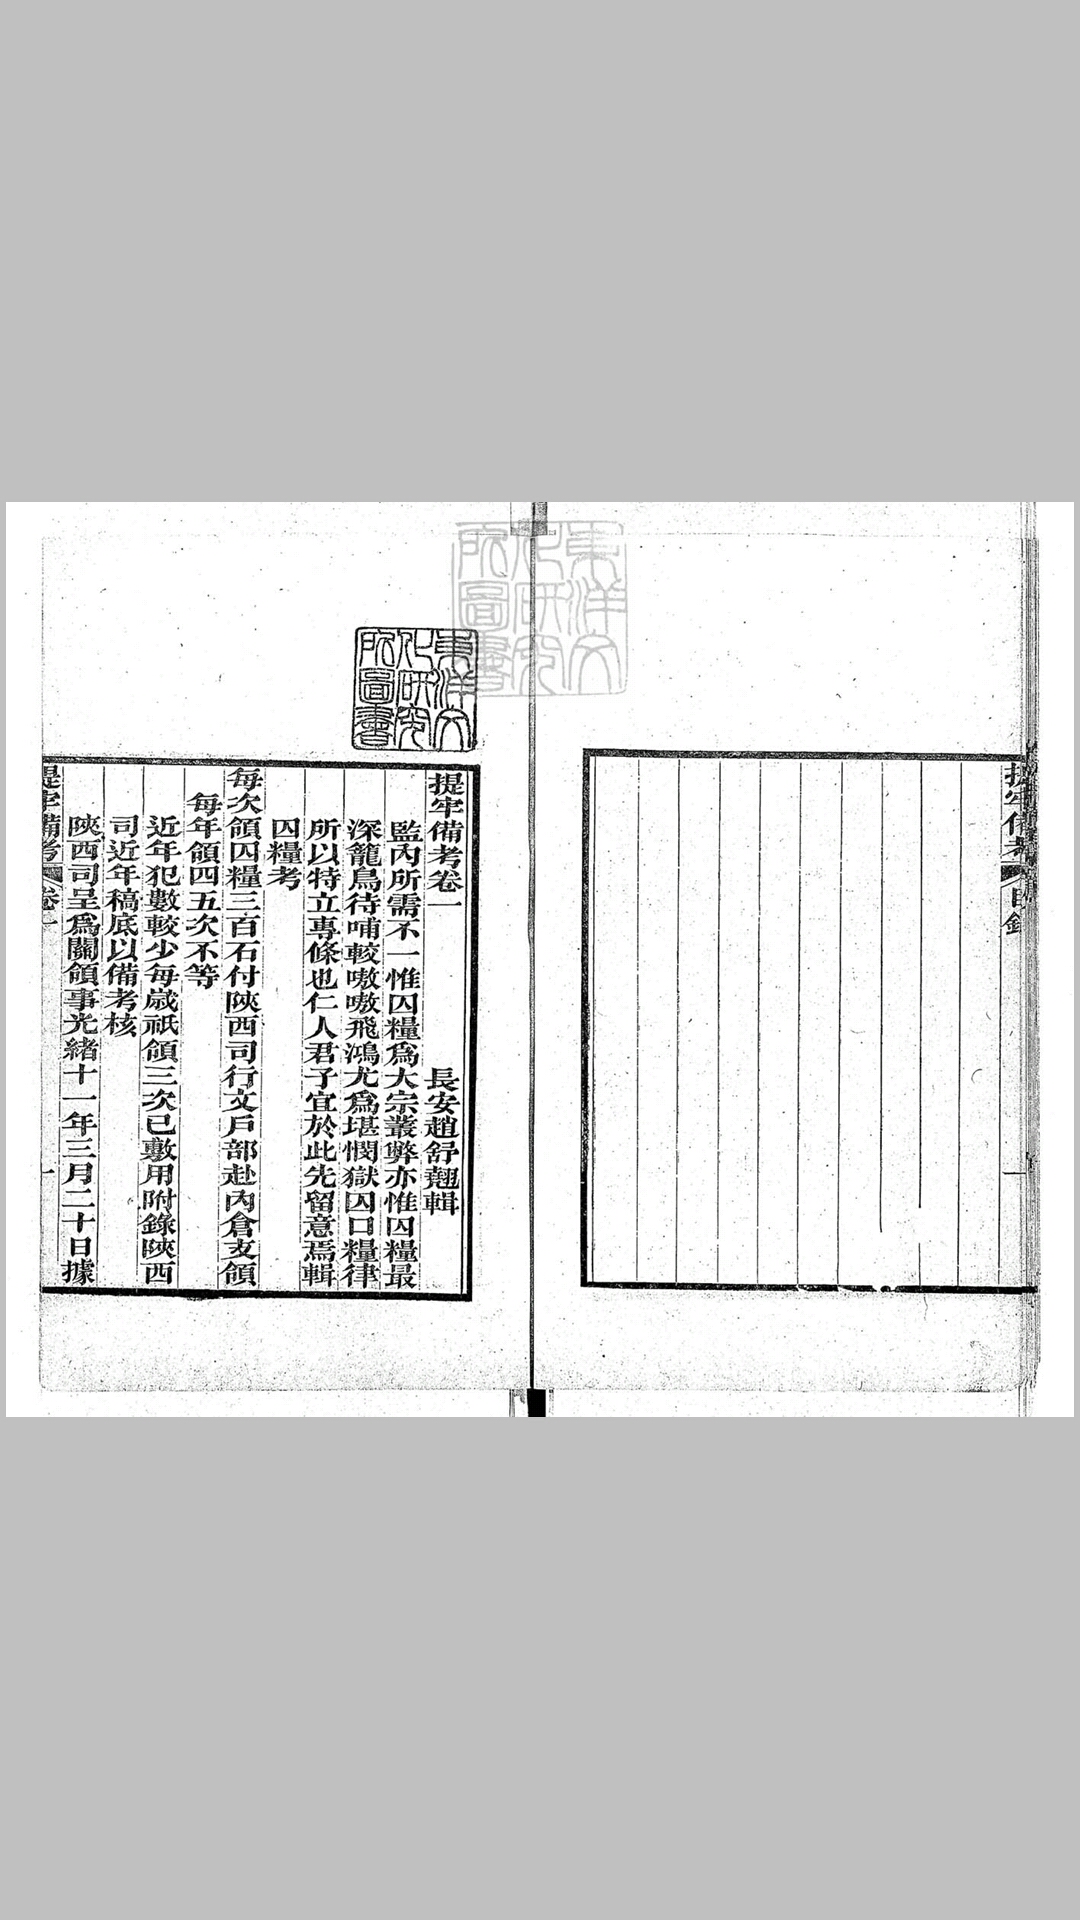 提牢備考
目錄
一
東洋文
化研究
院圖書
東洋文
化研究
院圖書
提牢備考卷一
長安趙舒翹輯
監內所需不一惟囚糧爲大宗叢弊亦惟囚糧最
深籠鳥待哺較嗷嗷飛鴻尤爲堪憫獄囚口糧律
所以特立專條也仁人君子宜於此先留意焉輯
囚糧考
每次領囚糧三百石付陝西司行文戶部赴內倉支領
每年領四五次不等
近年犯數較少每歲祇領三次已敷用附錄陝西
司近年稿底以備考核
陝西司呈爲關領事光緒十一年三月二十日據
提牢備考
卷一
一